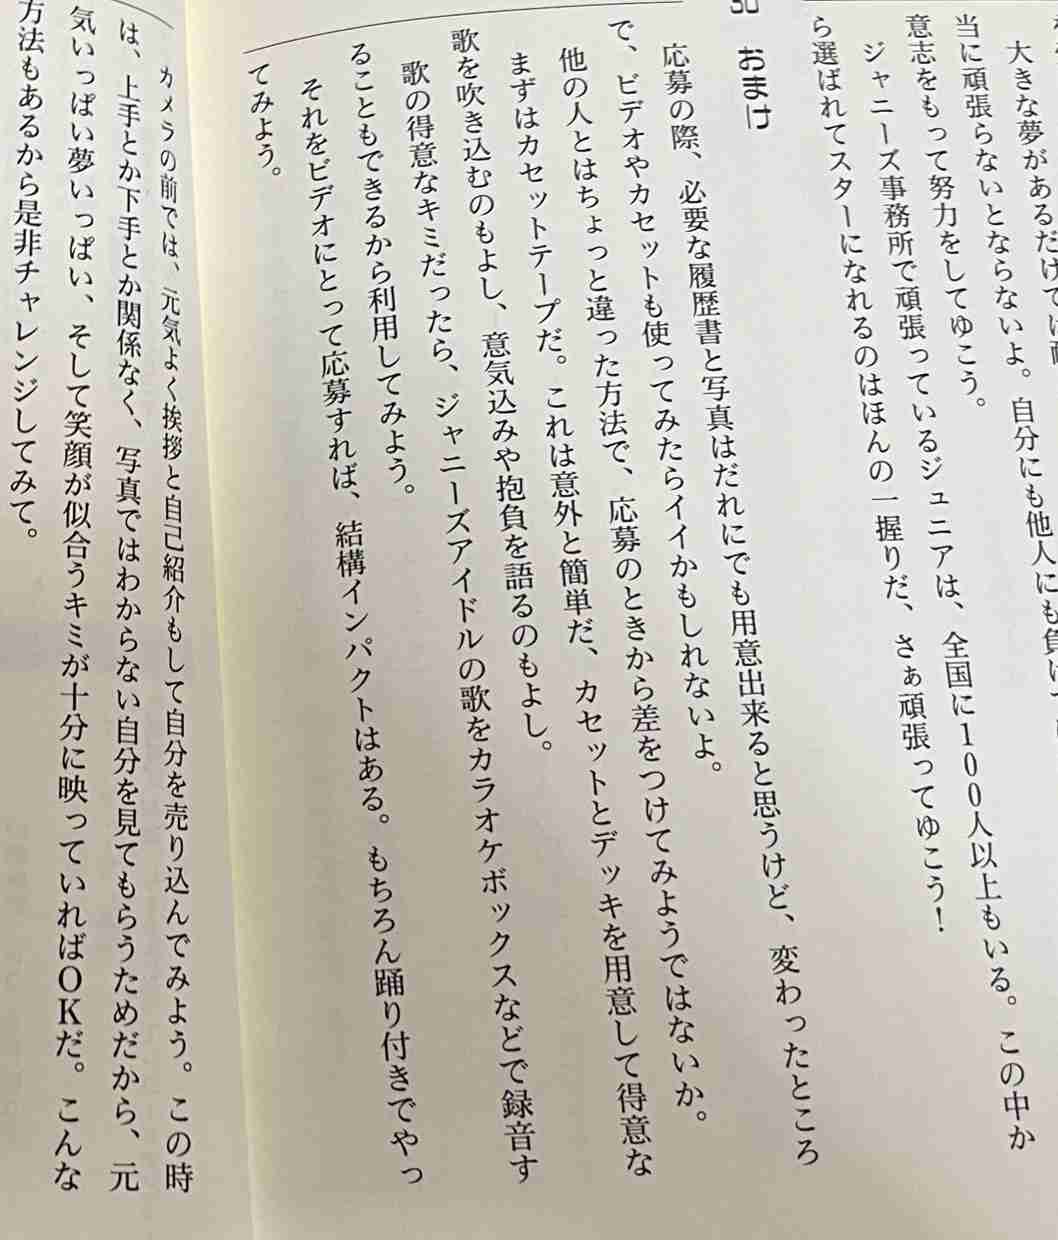 大きな夢があるだけでは
当に頑張らないとならないよ。自分にも他人にも負け
意志をもって努力をしてゆこう。
ジャニーズ事務所で頑張っているジュニアは、全国に100人以上もいる。この中か
ら選ばれてスターになれるのはほんの一握りだ、さぁ頑張ってゆこう!
30
おまけ
応募の際、必要な履歴書と写真はだれにでも用意出来ると思うけど、変わったところ
で、ビデオやカセットも使ってみたらイイかもしれないよ。
他の人とはちょっと違った方法で、応募のときから差をつけてみようではないか。
まずはカセットテープだ。これは意外と簡単だ、カセットとデッキを用意して得意な
歌を吹き込むのもよし、意気込みや抱負を語るのもよし。
歌の得意なキミだったら、ジャニーズアイドルの歌をカラオケボックスなどで録音す
ることもできるから利用してみよう。
それをビデオにとって応募すれば、結構インパクトはある。もちろん踊り付きでやっ
てみよう。
カメラの前では、元気よく挨拶と自己紹介もして自分を売り込んでみよう。この時
は、上手とか下手とか関係なく、写真ではわからない自分を見てもらうためだから、元
気いっぱい夢いっぱい、そして笑顔が似合うキミが十分に映っていればOKだ。こんな
方法もあるから是非チャレンジしてみて。